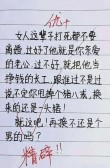 优计
女人这辈子打死都不要
离婚,过好了他就是你亲爱
的老公,过不好,就把他当
挣钱的长工,跟谁过不是过
说不定你甩掉个猪八戒,换
来的还是一头猪!
就这吧!再换不还是个
男的吗?
精辟!!